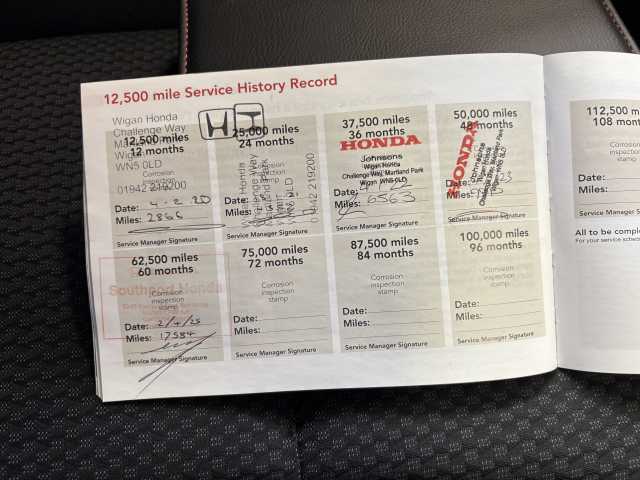 12,500 mile Service History Record
Wigan Honda
Challenge Way
Wigan
WN5 0LD
01942 219200
12,500 miles
12 months
Corrosion
inspection
stamp
Date: 4-2-20
Miles: 2866
Service Manager Signature
25,000 miles
24 months
Corrosion
inspection
stamp
Honda
Challenge Way
WN5 0LD
01942 219200
Date:
Miles:
Service Manager Signature
37,500 miles
36 months
HONDA
Johnsons
Wigan Honda
Challenge Way, Martland Park
Wigan WN5 0LD
Date:
Miles: 6563
Service Manager Signature
50,000 miles
48 months
HONDA
Wigan Honda
Challenge Way, Martland Park
Wigan WN5 0LD
Date: 23
Miles:
Service Manager Signature
62,500 miles
60 months
Southport Honda
Corrosion
inspection
stamp
Date: 2/4/25
Miles: 17584
Service Manager Signature
75,000 miles
72 months
Corrosion
inspection
stamp
Date:
Miles:
Service Manager Signature
87,500 miles
84 months
Corrosion
inspection
stamp
Date:
Miles:
Service Manager Signature
100,000 miles
96 months
Corrosion
inspection
stamp
Date:
Miles:
Service Manager Signature
112,500 m
108 mon
Corrosio
inspectio
stamp
Date:
Miles:
Service Manager S
All to be compl
For your service sched